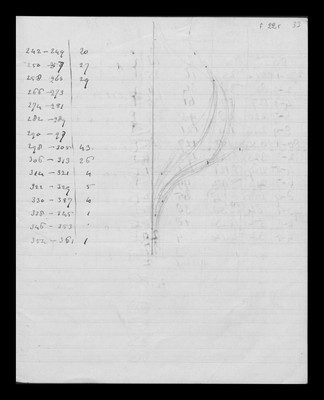 242 – 249 20
250 – 57 27
258 – 265 29
266 – 273
274 – 281
282 – 289
290 – 97
298 – 305 43
306 – 313 26
314 – 321 4
322 – 329 5
330 – 337 4
338 – 345 1
346 – 353
354 – 361 1